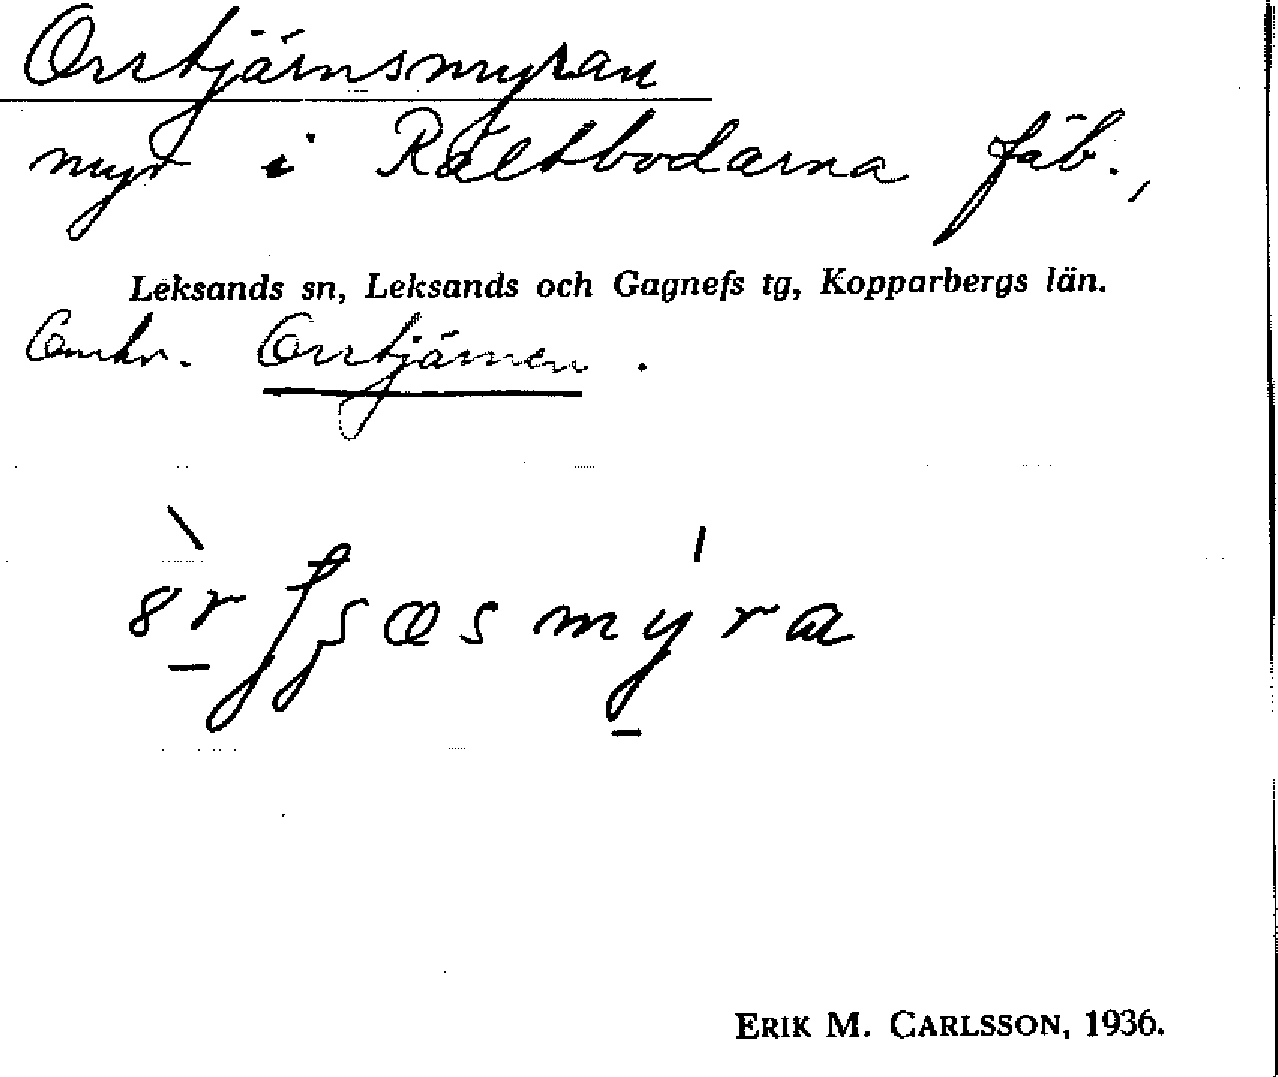 Orrtjärnsmyran
myr i Rältbodarna fäb.,
Leksands sn, Leksands och Gagnefs tg, Kopparbergs län.
Omkr. Orrtjärnen.
ERIK M. CARLSSON, 1936.